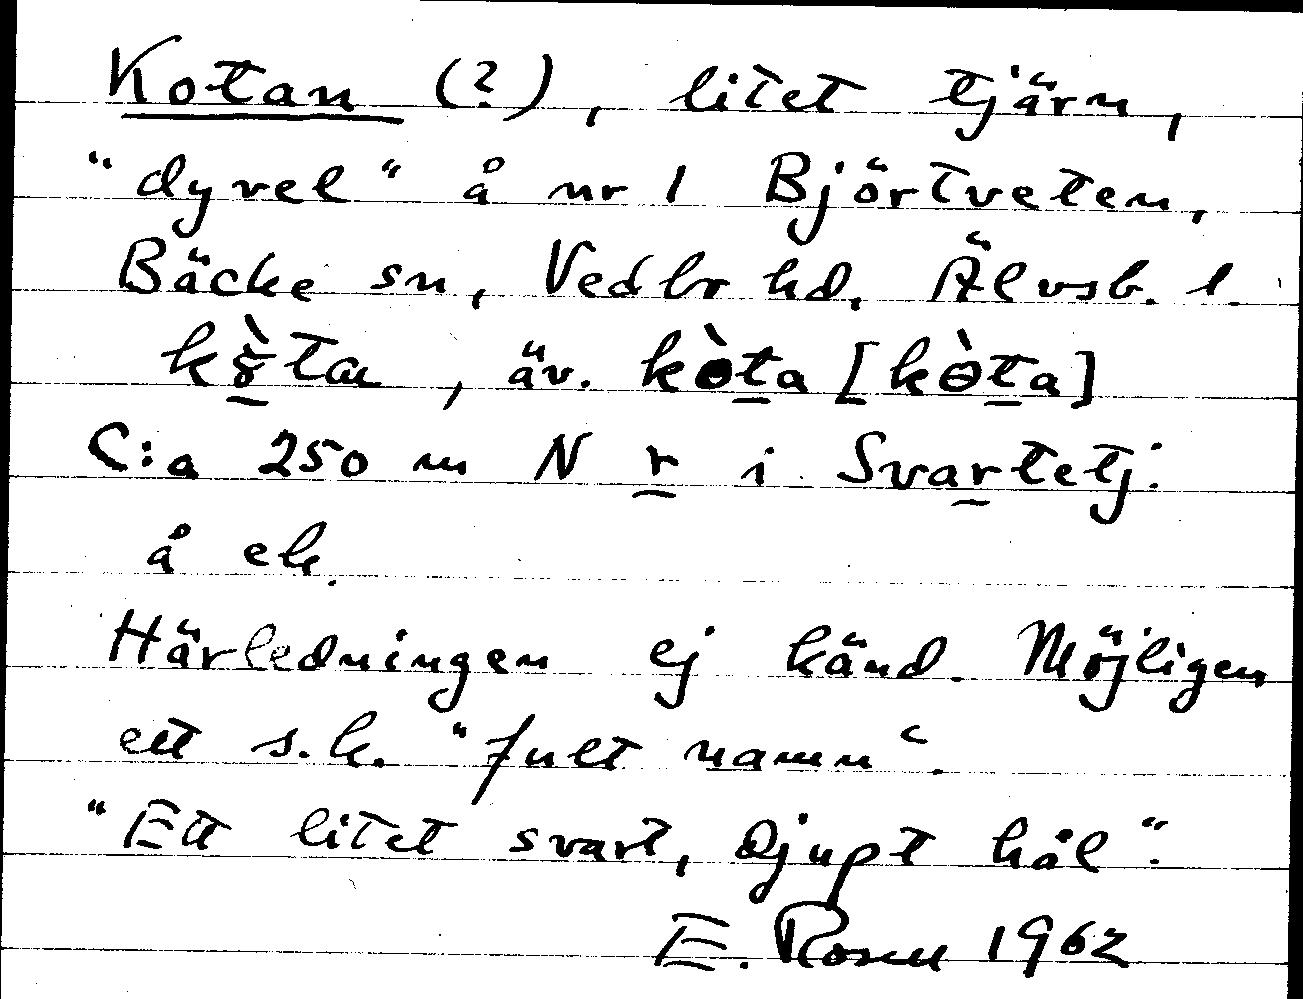 Kotan (?), litet tjärn,
"dyvel" å nr 1 Björtveten,
Bäcke sn, Vedbo hd, Älvsb. l.
kòta, äv. kòta [kòta]
C:a 250 m N r i Svartetj.
å ek.
Härledningen ej känd. Möjligen
ett s.k. "fult namn".
"Ett litet svart, djupt hål".
E. Rosell 1962